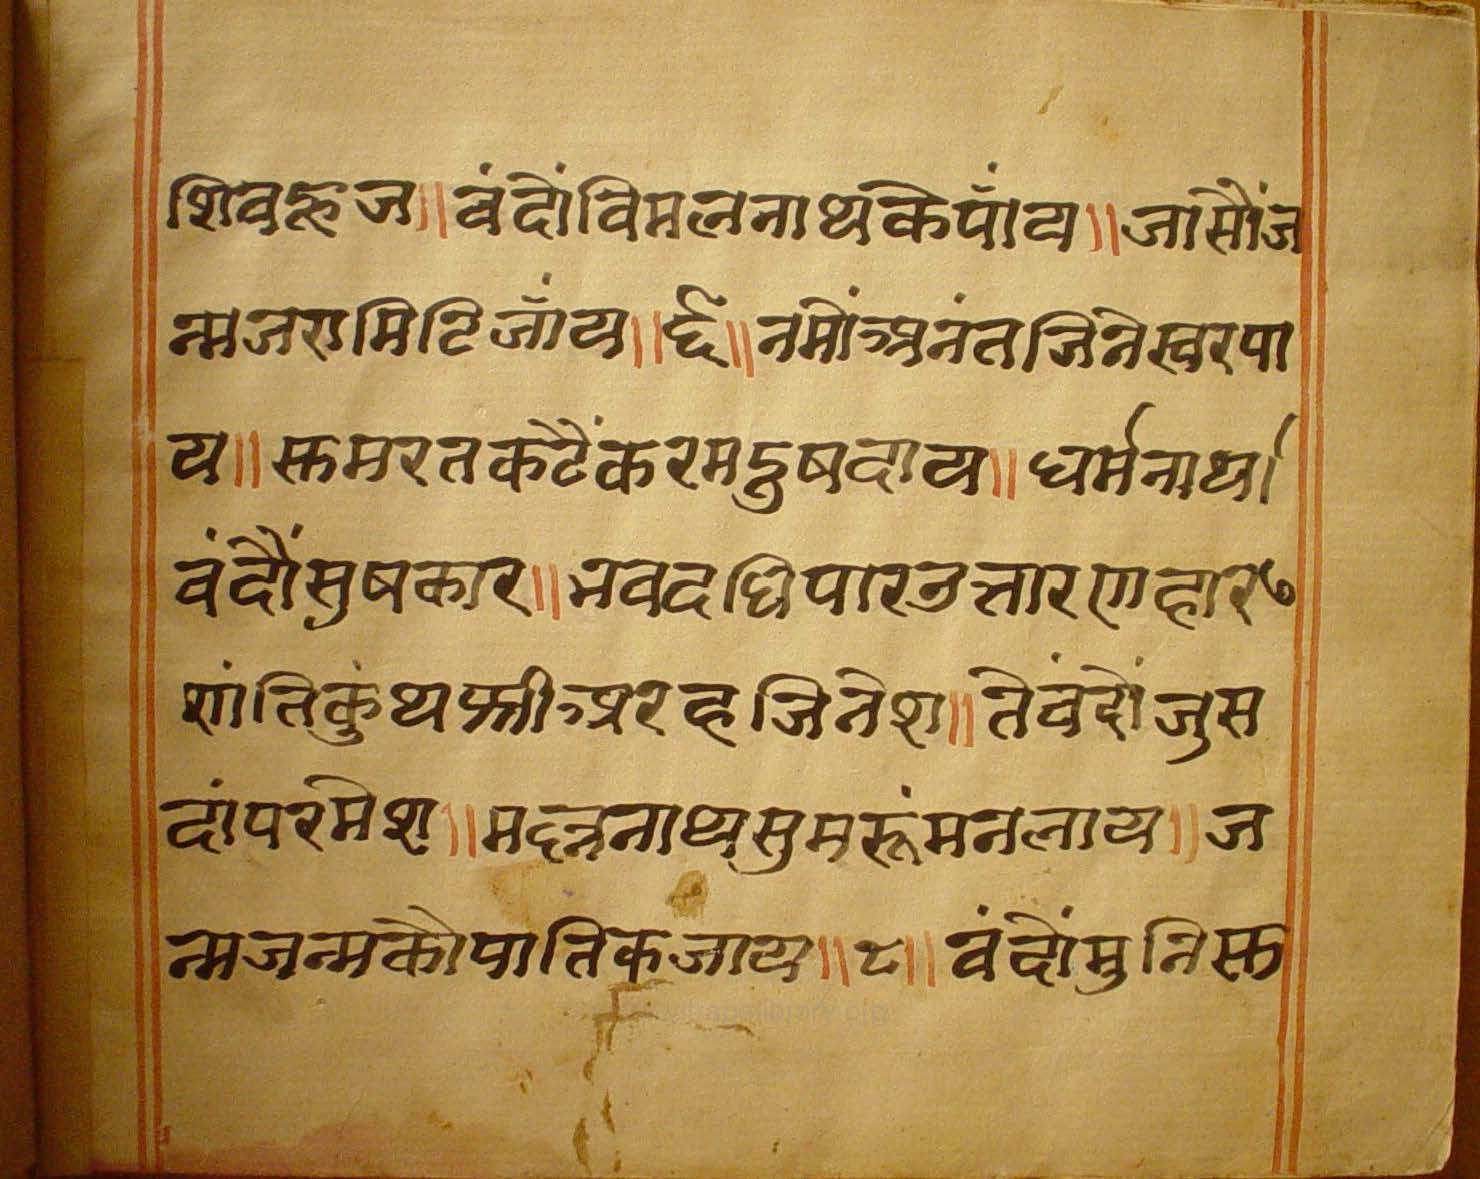 शिवहृज॥वंदौंविमलनाथकेपाँय॥जासौंज
न्मजरामिटिजाँय॥६॥नमोंअनंतजिनेस्वरपा
य॥स्मरतकटैंकरमदुषदाय॥धर्मनाथा
वंदौंसुषकार॥भवदधिपारउत्तारणहार७
शांतिकुंथश्रीअरहजिनेश॥तेवंदौंजुस
दांपरमेश॥मल्लनाथसुमरूंमनलाय॥ज
न्मजन्मकौपातिकजाय॥८॥वंदौंमुनिसु